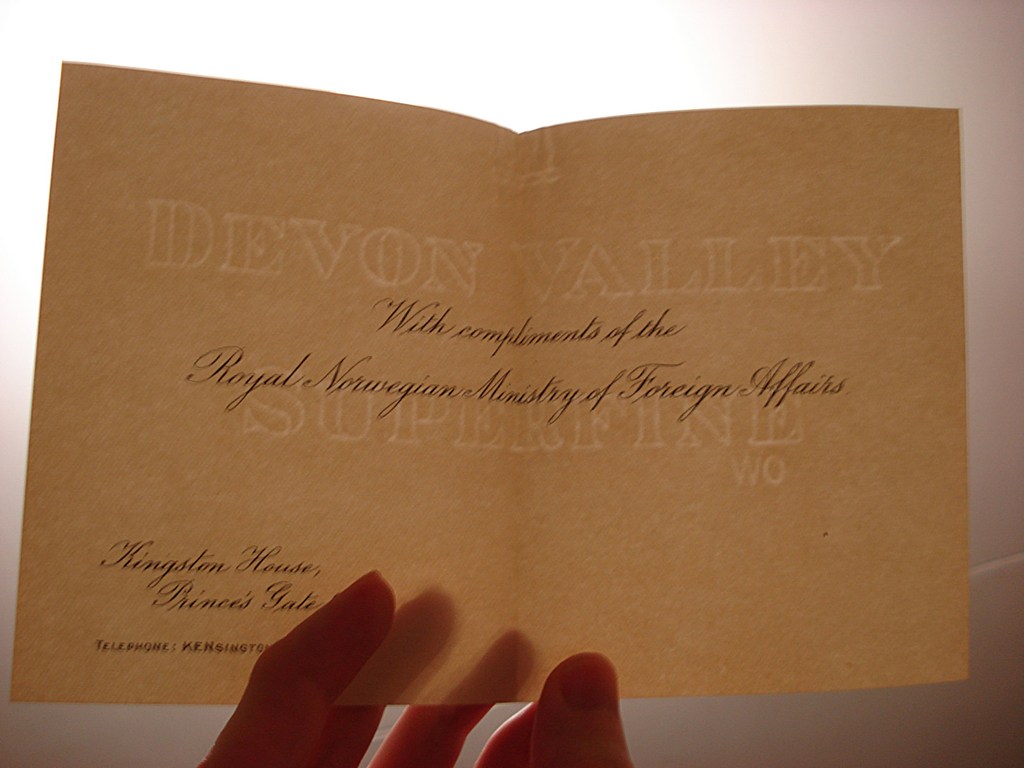 DEVON VALLEY
With compliments of the
Royal Norwegian Ministry of Foreign Affairs
SUPERFINE
WO
Kingston House,
Prince's Gate
TELEPHONE: KENSINGTON